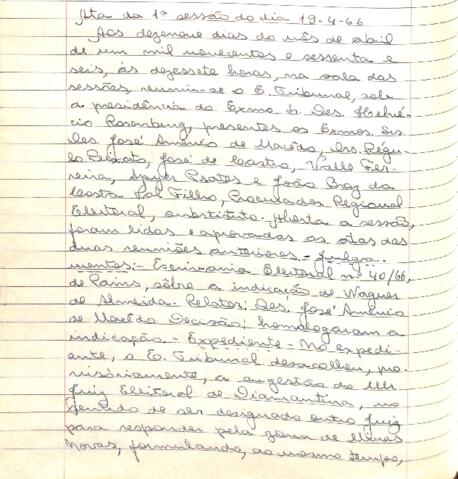 Ata da 1ª sessão do dia 19-4-66
Aos dezenove dias do mês de abril
de um mil novecentos e sessenta e
seis, às dezessete horas, na sala das
sessões, reuniu-se o E. Tribunal, sob
a presidência do Exmo. Sr. Des. Helvé-
cio Rosenburg, presentes os Exmos. Srs.
Des. José Américo de Macêdo, Drs. Régu-
lo Peixoto, José de Castro, Valle Fer-
reira, Prates e João Braz da
Costa Val Filho, Procurador Regional
Eleitoral, substituto. Aberta a sessão,
foram lidas e aprovadas as atas das
duas reuniões anteriores. - Julga-
mentos: - Escrivania Eleitoral nº 40/66,
de Pains, sôbre a indicação de Wagner
de Almeida. Relator: Des. José Américo
de Macêdo Decisão: homologaram a
indicação. - Expediente - No expedi-
ente, o E. Tribunal desacolheu, pro-
visòriamente, a sugestão do MM.
Juiz Eleitoral de Diamantina, no
sentido de ser designado outro Juiz
para responder pela zona de Minas
Novas, formulando, ao mesmo tempo,